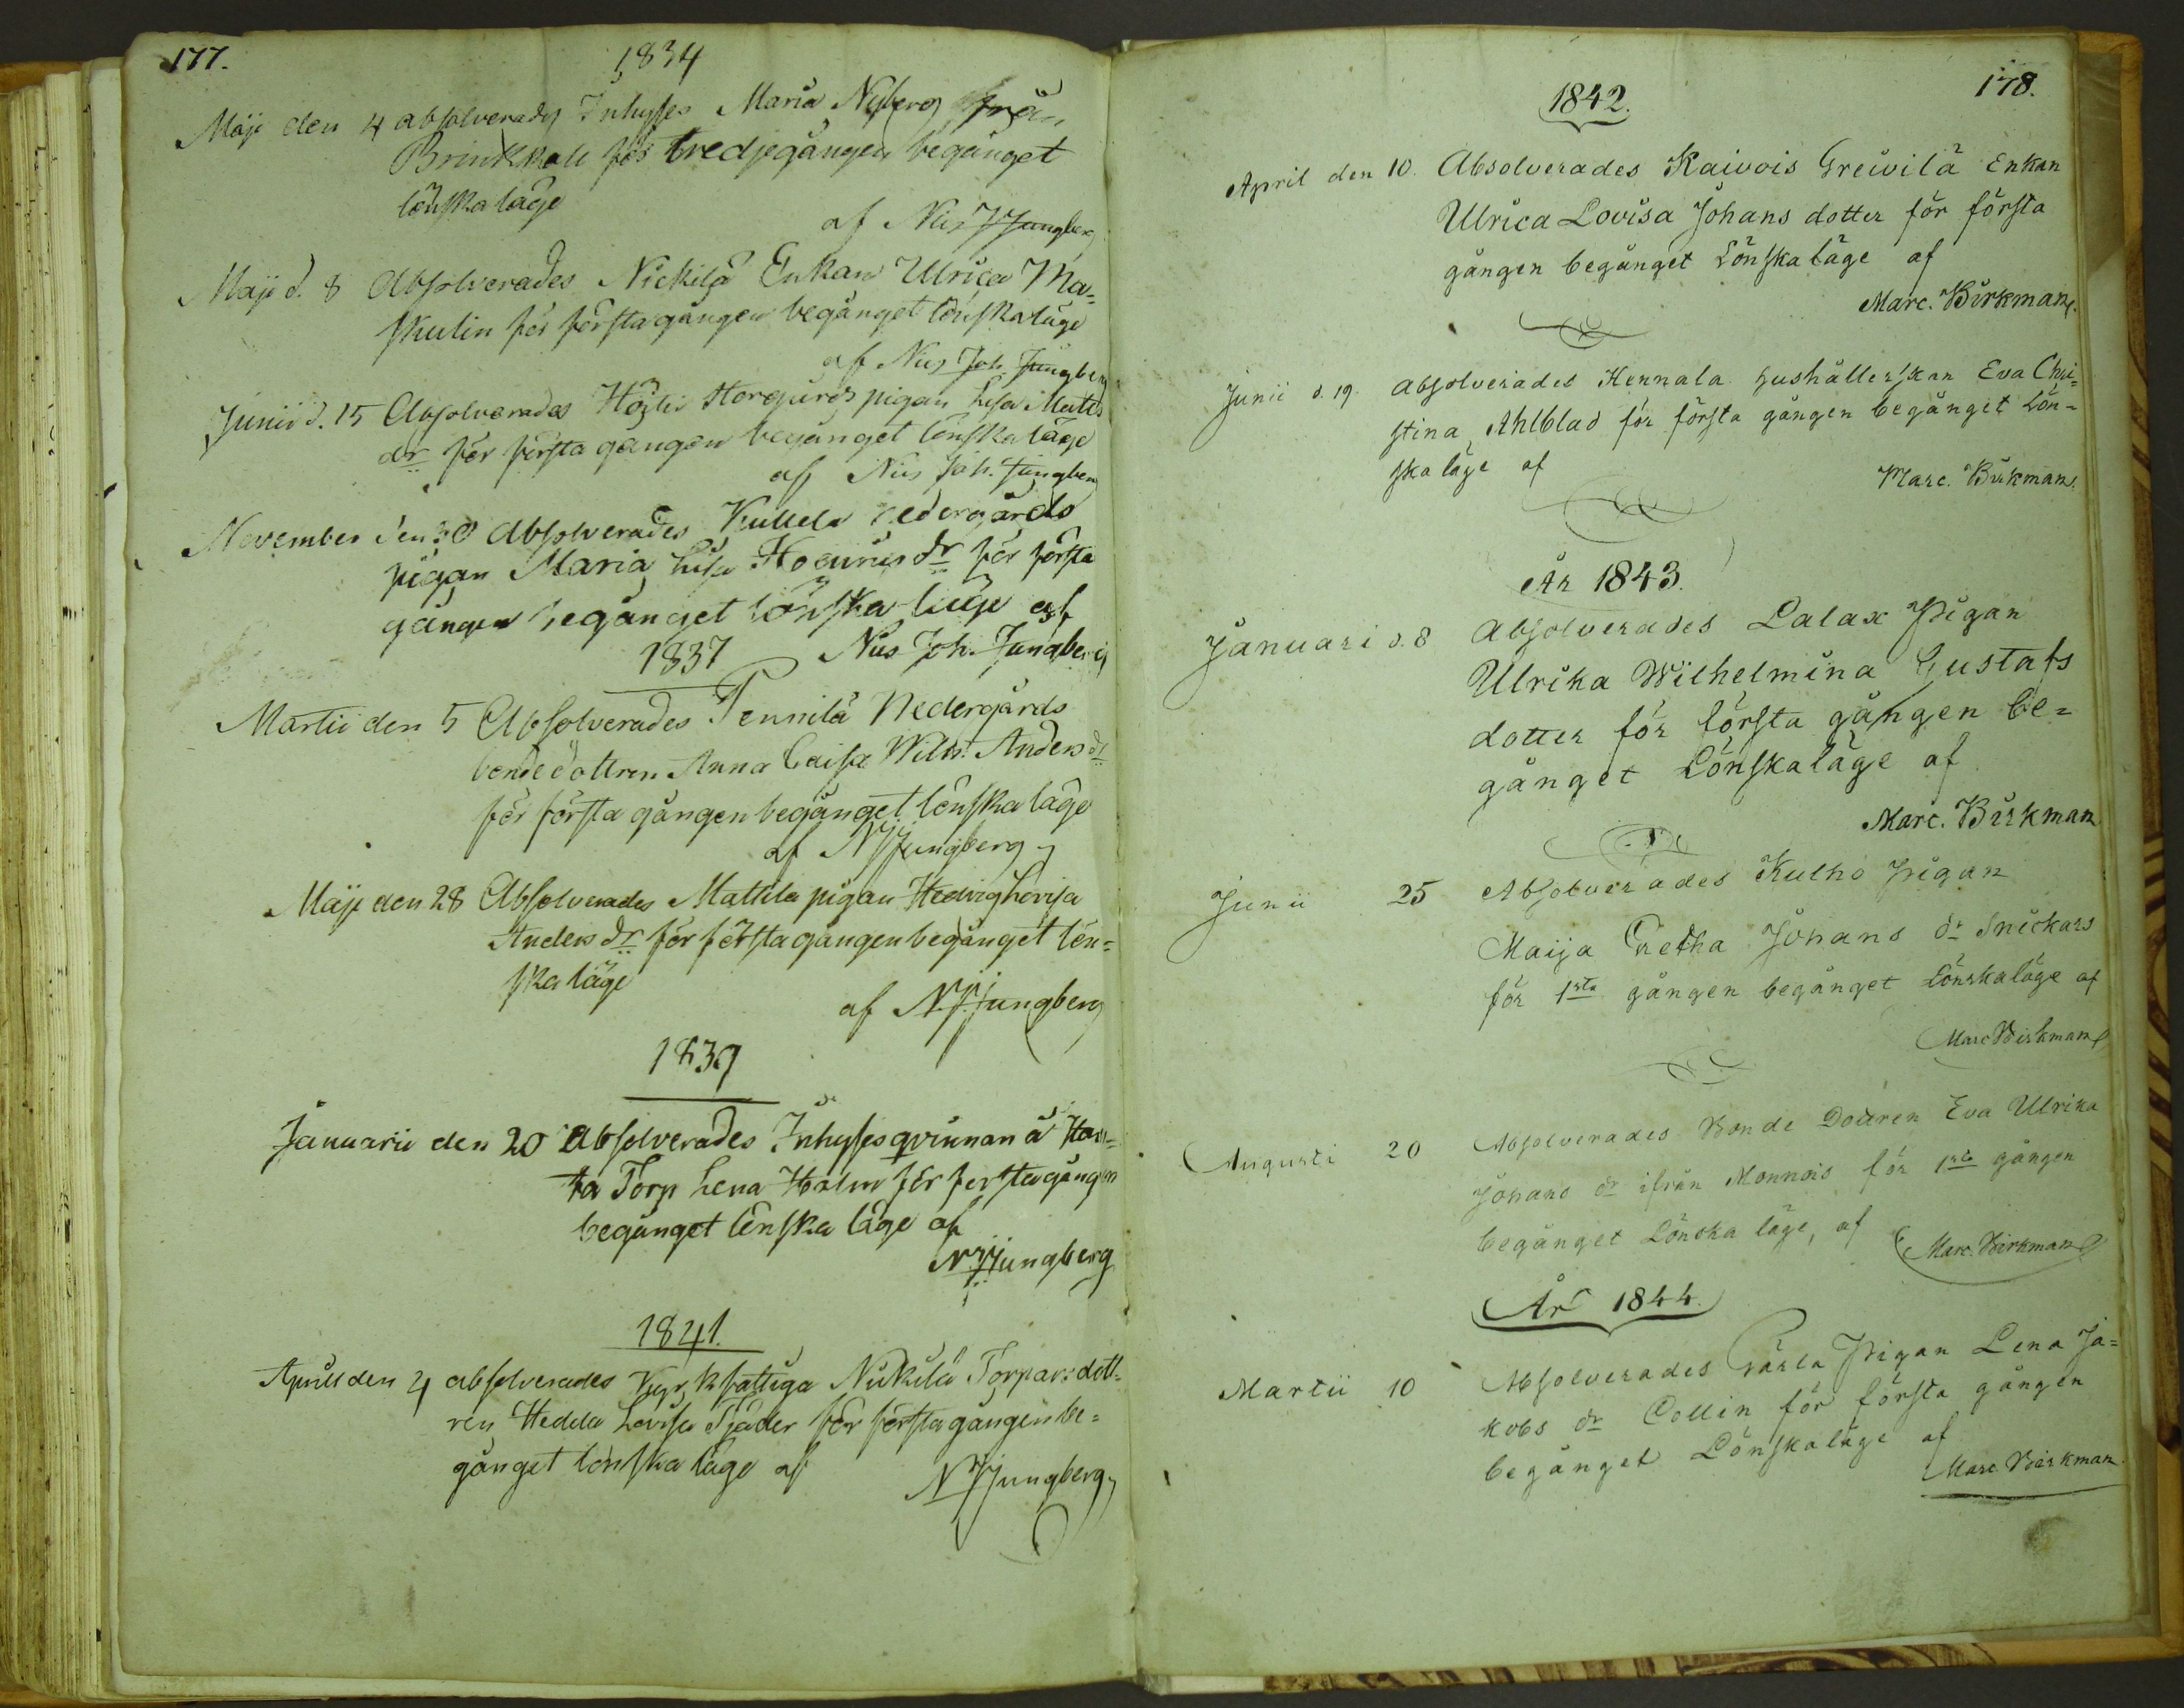 177.
1834
Maje den 4 absolverades Inhyses Maria Nyberg från
Brinkkala för tredjegången begånget
lönskaläge
af Nils J Jungberg
Maje d. 8 Absolverades Nickilä Enkan Ulrica Ma-
skulin för förstagången begånget lönskaläge
af Nils Joh. Jungberg
Junii d. 15 Absolverades Storgårds pigan Lisa Matts
dr för första gången begånget lönskaläge
af Nils Joh. Jungberg
November den 30 Absolverades Kullela nedergårds
pigan Maria Lisa dr för första
gången begånget lönska läge af
1837 Nils Joh. Jungberg
Martii den 5 Absolverades Pennilä Nedergårds
bondedottren Anna Caisa Wilh: Anders dr
för första gången begånget lönskaläge
af N J Jungberg
Maje den 28 Absolverades Mattila pigan Hedvig Lovisa
Anders dr för första gången begånget lön-
skaläge
af N. J. Jungberg
1839
Januarii den 20 Absolverades Inhyses qvinnan å
Torp Lena Holm för första gången
begånget lönska läge af
N J Jungberg
1841.
April den 4 absolverades Kyrkfattiga Nikkilä Torpars dott-
ren Hedda Lovisa Tjäder för första gången be-
gånget lönska läge af
N J Jungberg
178.
1842.
April den 10. Absolverades Kaivois Greivilä Enkan
Ulrica Lovisa Johans dotter för första
gången begånget Lönskaläge af
Marc. Birkman.
Junii d. 19. Absolverades Hennala hushållerskan Eva Chri-
stina Ahlblad för första gången begånget Lön-
skaläge af
Marc. Birkman.
År 1843.
Januari d. 8 Absolverades Lalax Pigan
Ulrika Wilhelmina Gustafs
dotter för första gången be-
gånget Lönskaläge af
Marc. Birkman
Junii 25 Absolverades Kulho Pigan
Maija Gretha Johans dr Snickars
för 1sta gången begånget Lönskaläge af
Marc Birkman
Augusti 20 Absolverades Bonde Dottren Eva Ulrika
Johans dr ifrån Monnois för 1sta gången
begånget Lönska läge, af
Marc. Birkman
År 1844.
Martii 10 Absolverades Pigan Lena Ja-
kobs dr Collin för första gången
begånget Lönskaläge af
Marc. Birkman